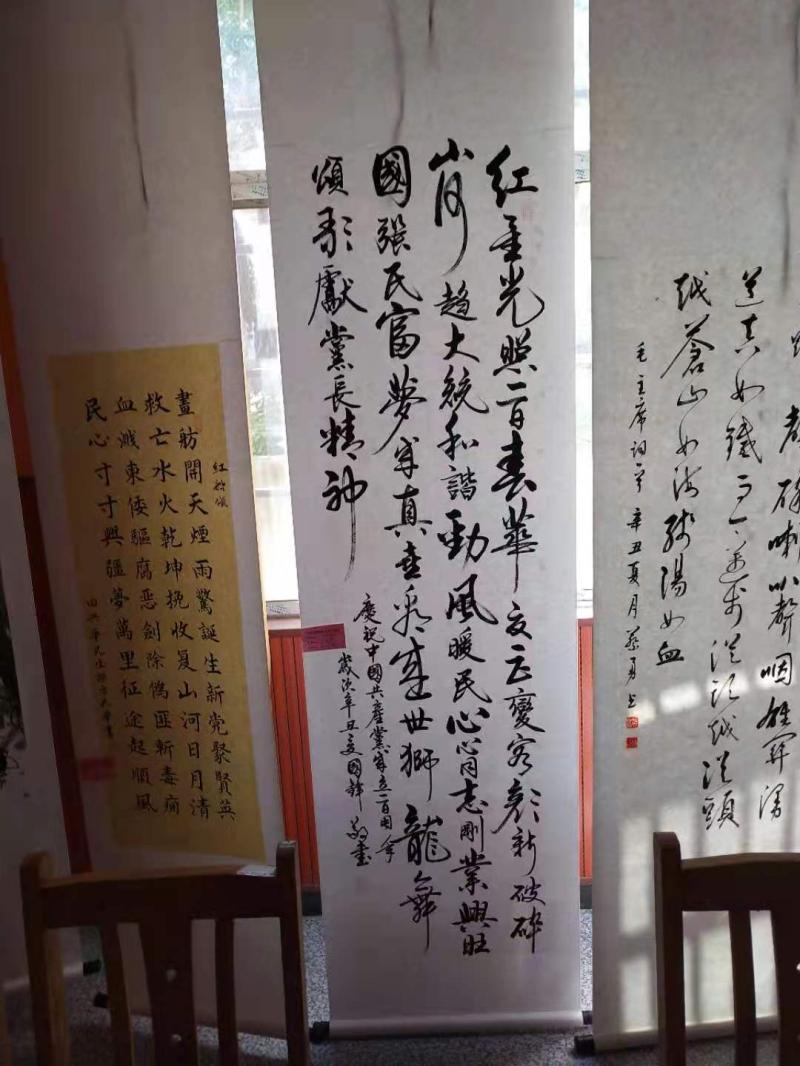 蹄聲碎喇叭聲咽雄關漫
道真如鐵而今邁步從頭越從頭
越蒼山如海殘陽如血
毛主席詞一首 辛丑夏月蔡勇書
红星光照一百春華夏巨變容顏新破碎
山河趋大統和諧勁風暖民心心有志剛業興旺
國强民富夢成真喜看盛世獅龍舞
頌歌獻黨長精神
慶祝中國共產黨成立一百周年
歲次辛丑夏國鋒敬書
紅船頌
畫舫開天煙雨驚誕生新党聚賢英
救亡水火乾坤挽收复山河日月清
血濺東倭驅腐恶劍除僞匪斬毒瘤
民心寸寸興疆夢萬里征途起順風